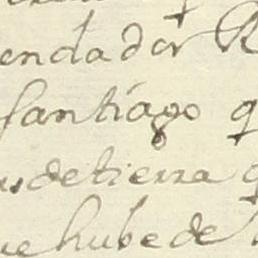 endador R
santiago q
us de tierra q
ue hube de